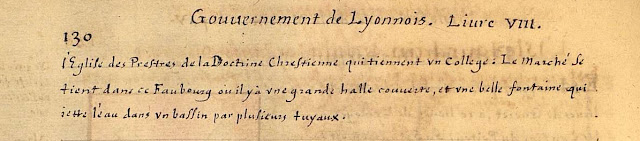 Gouuernement de Lyonnois. Liure VIII.
130
l'Eglise des Prestres de la Doctrine Chrestienne qui tiennent vn College. Le Marché se
tient dans ce Faubourg où il y à vne grande halle couuerte, et vne belle fontaine qui
iette l'eau dans vn bassin par plusieurs tuyaux.